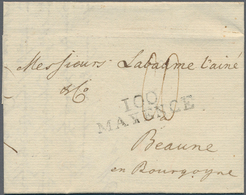 Messieurs Labaume l'ainé
& Co
100
MAYENCE
Beaune
en Bourgogne